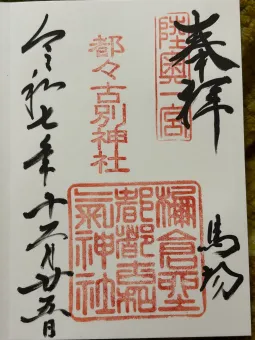 奉拝
陸奥一宮
馬場
都々古別神社
棚倉
都都古和
氣神社
令和七年十二月廿五日